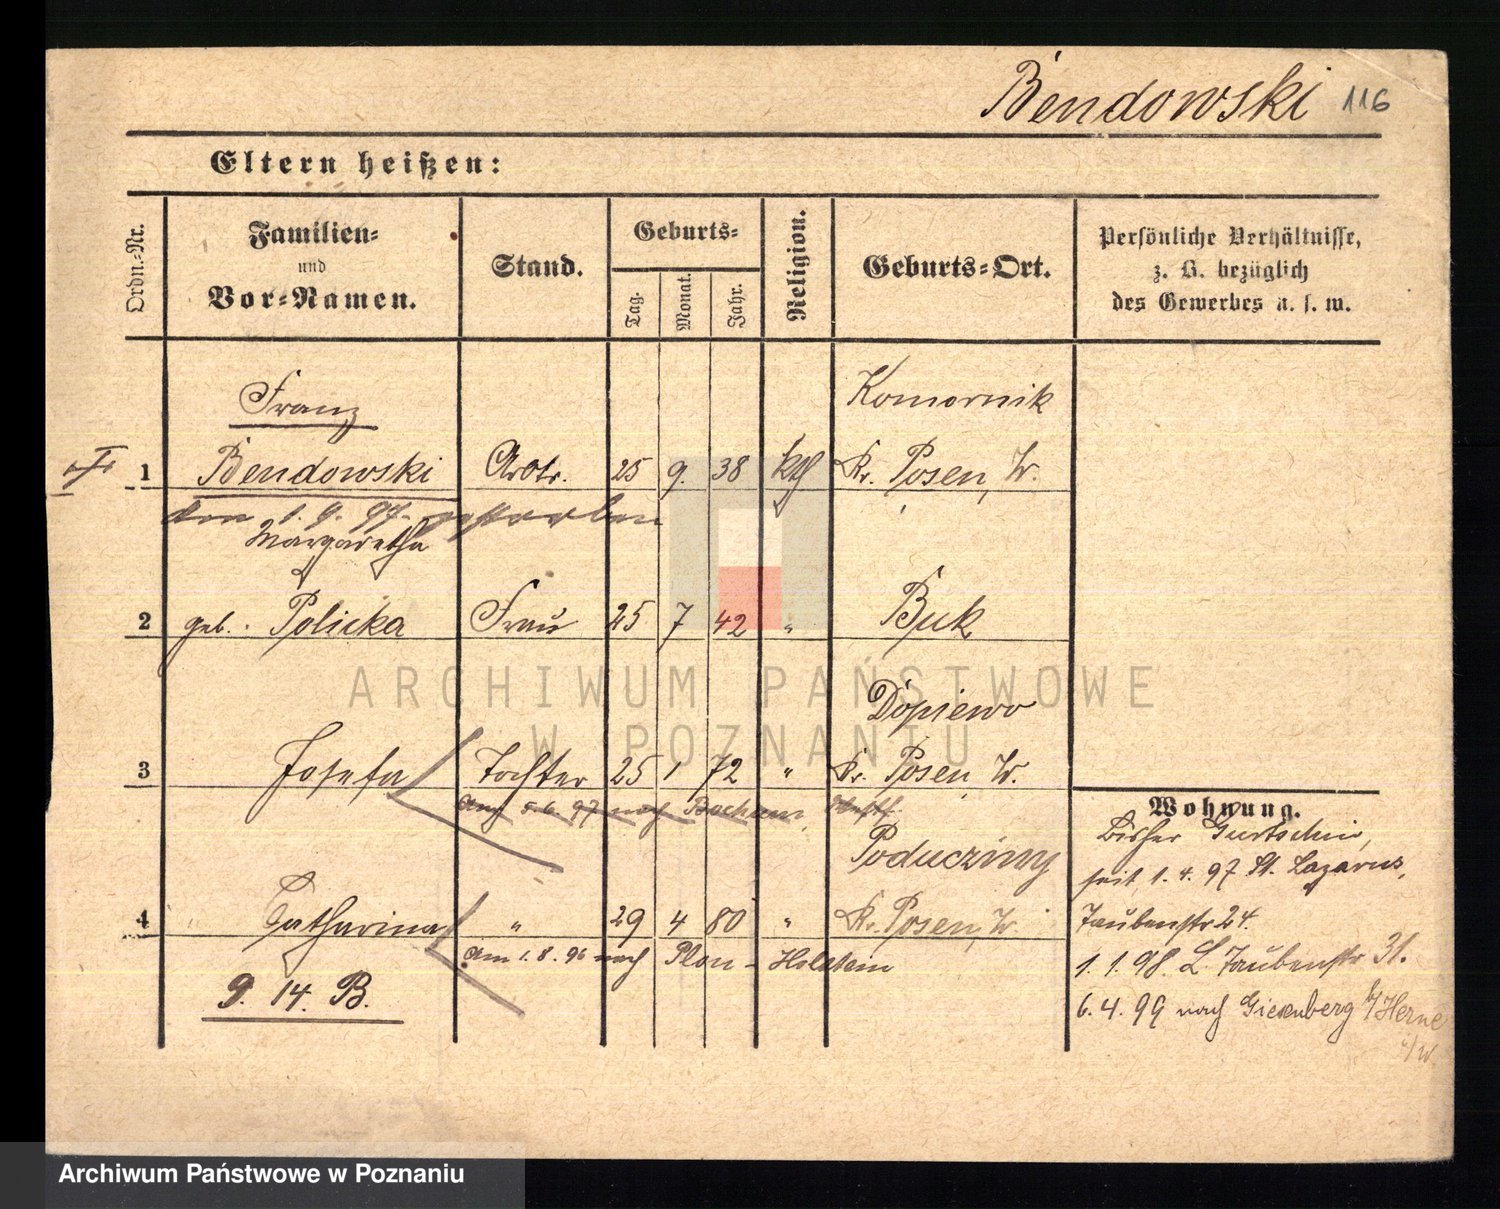 Bendowski 116
Eltern heißen:
Ordn.-Nr.
Familien-
und
Vor-Namen.
Stand.
Geburts-
Tag.
Monat.
Jahr.
Religion.
Geburts-Ort.
Persönliche Verhältnisse,
z. B. bezüglich
des Gewerbes u. s. w.
Franz Komornik
1 Bendowski Arbtr. 25 9. 38 kth Kr. Posen, W.
den 1. 9. 97. gestorben
Margaretha
2 geb. Policka Frau 25 7 42 " Buk
Dopiewo
3 Josefa Tochter 25 1 72 " Kr. Posen, W.
Am 5. 6. 97 nach Bochum, Westf.
Catharina Poduczimy
4 " 29 4 80 " Kr. Posen, W.
Am 1. 8. 96 nach Plon - Holstein
9. 14. B.
Wohnung.
Bisher Gurtschin,
seit 1. 4. 97 St. Lazarus,
Taubenstr 24.
1. 1. 98. L. Taubenstr 31.
6. 4. 99 nach Giesenberg b/Herne
i/W.
ARCHIWUM PAŃSTWOWE
W POZNANIU
Archiwum Państwowe w Poznaniu